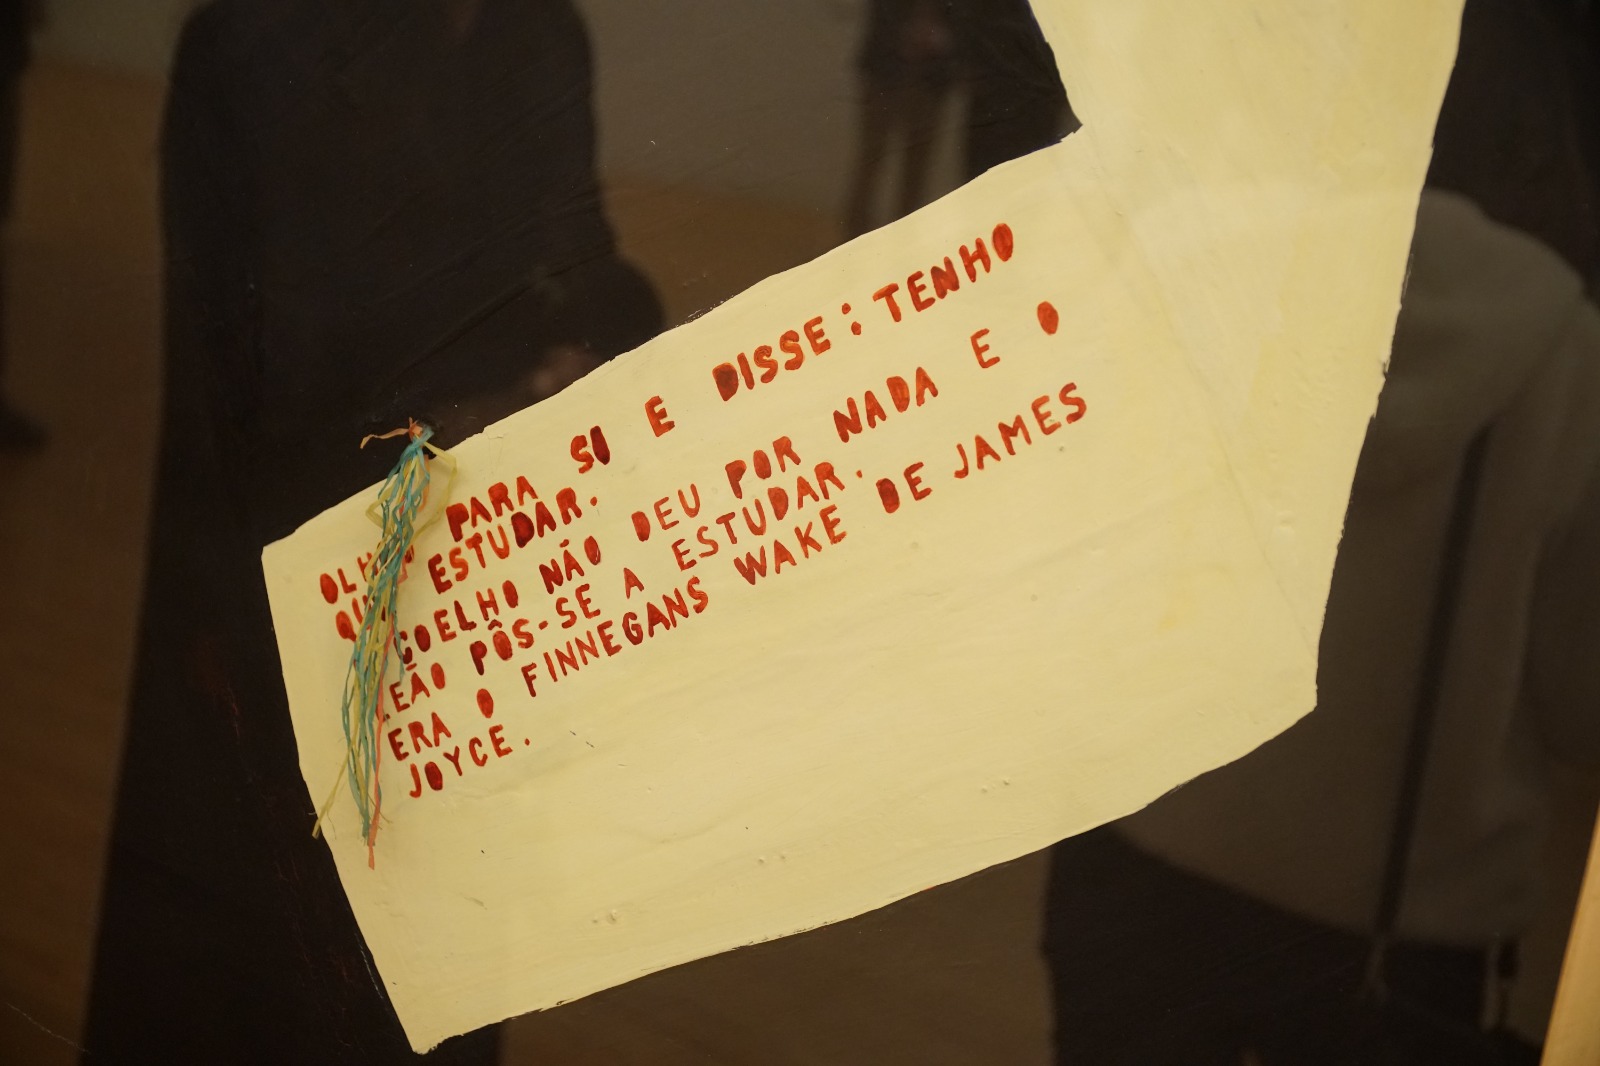 OLHOU PARA SI E DISSE: TENHO
QUE ESTUDAR.
COELHO NÃO DEU POR NADA E O
LEÃO PÔS-SE A ESTUDAR.
ERA O FINNEGANS WAKE DE JAMES
JOYCE.